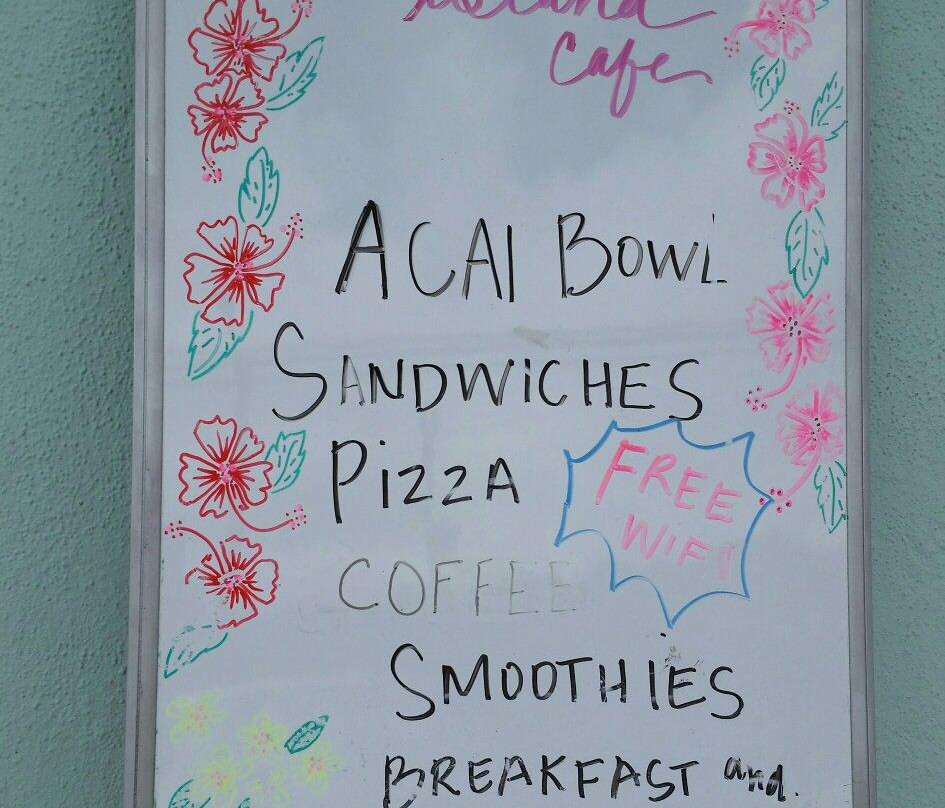 island
Cafe
ACAI BOWL
SANDWiCHES
PizzA
FREE
WiFi
COFFEE
SMOOTHiES
BREAKFAST and